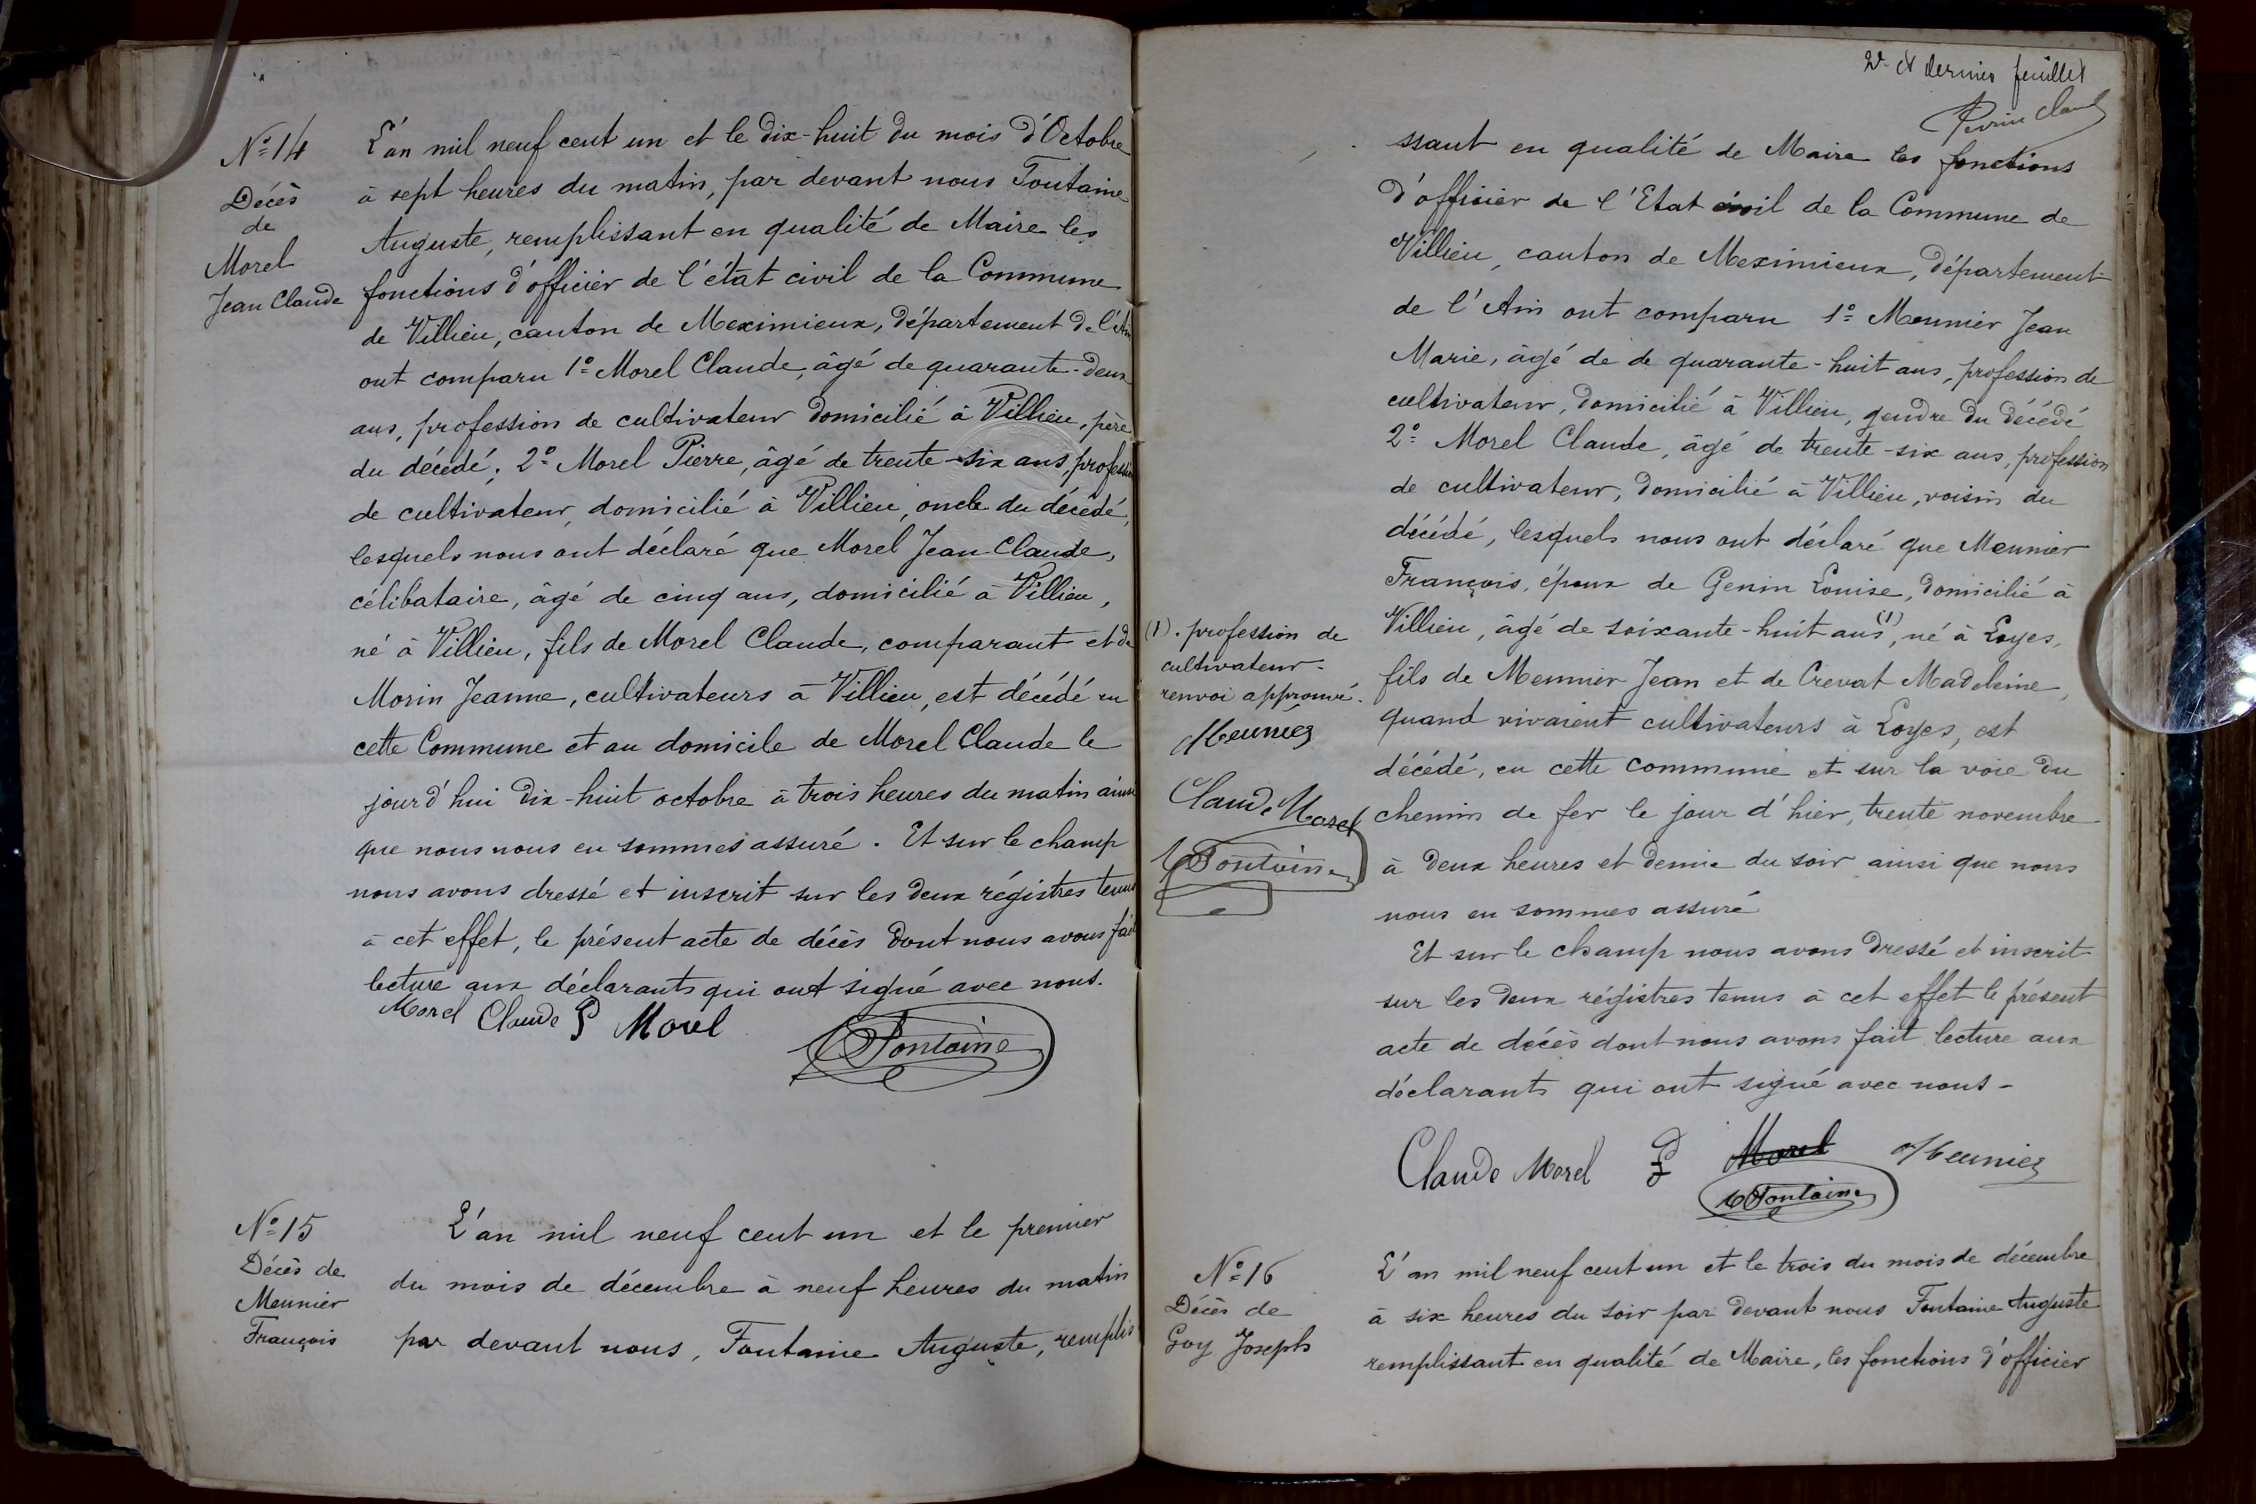 Nº 14
Décès
de
Morel
Jean Claude
L'an mil neuf cent un et le dix-huit du mois d'Octobre
à sept heures du matin, par devant nous Fontaine
Auguste, remplissant en qualité de Maire les
fonctions d'officier de l'état civil de la Commune
de Villieu, canton de Meximieux, département de l'Ain
ont comparu 1º Morel Claude, âgé de quarante-deux
ans, profession de cultivateur domicilié à Villieu, père
du décédé; 2º Morel Pierre, âgé de trente-six ans, profession
de cultivateur, domicilié à Villieu, oncle du décédé,
lesquels nous ont déclaré que Morel Jean Claude,
célibataire, âgé de cinq ans, domicilié à Villieu,
né à Villieu, fils de Morel Claude, comparant et de
Morin Jeanne, cultivateurs à Villieu, est décédé en
cette Commune et au domicile de Morel Claude le
jour d'hui dix-huit octobre à trois heures du matin ainsi
que nous nous en sommes assuré. Et sur le champ
nous avons dressé et inscrit sur les deux régistres tenus
à cet effet, le présent acte de décès dont nous avons fait
lecture aux déclarants qui ont signé avec nous.
Morel Claude P Morel
Fontaine
Nº 15
Décès de
Meunier
François
L'an mil neuf cent un et le premier
du mois de décembre à neuf heures du matin
par devant nous, Fontaine Auguste, remplis
2e et dernier feuillet
Perrin Claude
ssant en qualité de Maire les fonctions
d'officier de l'Etat civil de la Commune de
Villieu, canton de Meximieux, département
de l'Ain ont comparu 1º Meunier Jean
Marie, âgé de de quarante-huit ans, profession de
cultivateur, domicilié à Villieu, gendre du décédé
2º Morel Claude, âgé de trente-six ans, profession
de cultivateur, domicilié à Villieu, voisin du
décédé, lesquels nous ont déclaré que Meunier
François, époux de Genin Louise, domicilié à
Villieu, âgé de soixante-huit ans (1), né à Loyes,
fils de Meunier Jean et de Crevat Madeleine,
quand vivaient cultivateurs à Loyes, est
décédé, en cette commune et sur la voie du
chemin de fer le jour d'hier, trente novembre
à deux heures et demie du soir ainsi que nous
nous en sommes assuré
Et sur le champ nous avons dressé et inscrit
sur les deux régistres tenus à cet effet le présent
acte de décès dont nous avons fait lecture aux
déclarants qui ont signé avec nous -
(1). profession de
cultivateur -
renvoi approuvé.
Meunier
Claude Morel
Fontaine
Claude Morel P Morel Meunier
Fontaine
Nº 16
Décès de
Goy Joseph
L'an mil neuf cent un et le trois du mois de décembre
à six heures du soir par devant nous Fontaine Auguste
remplissant en qualité de Maire, les fonctions d'officier